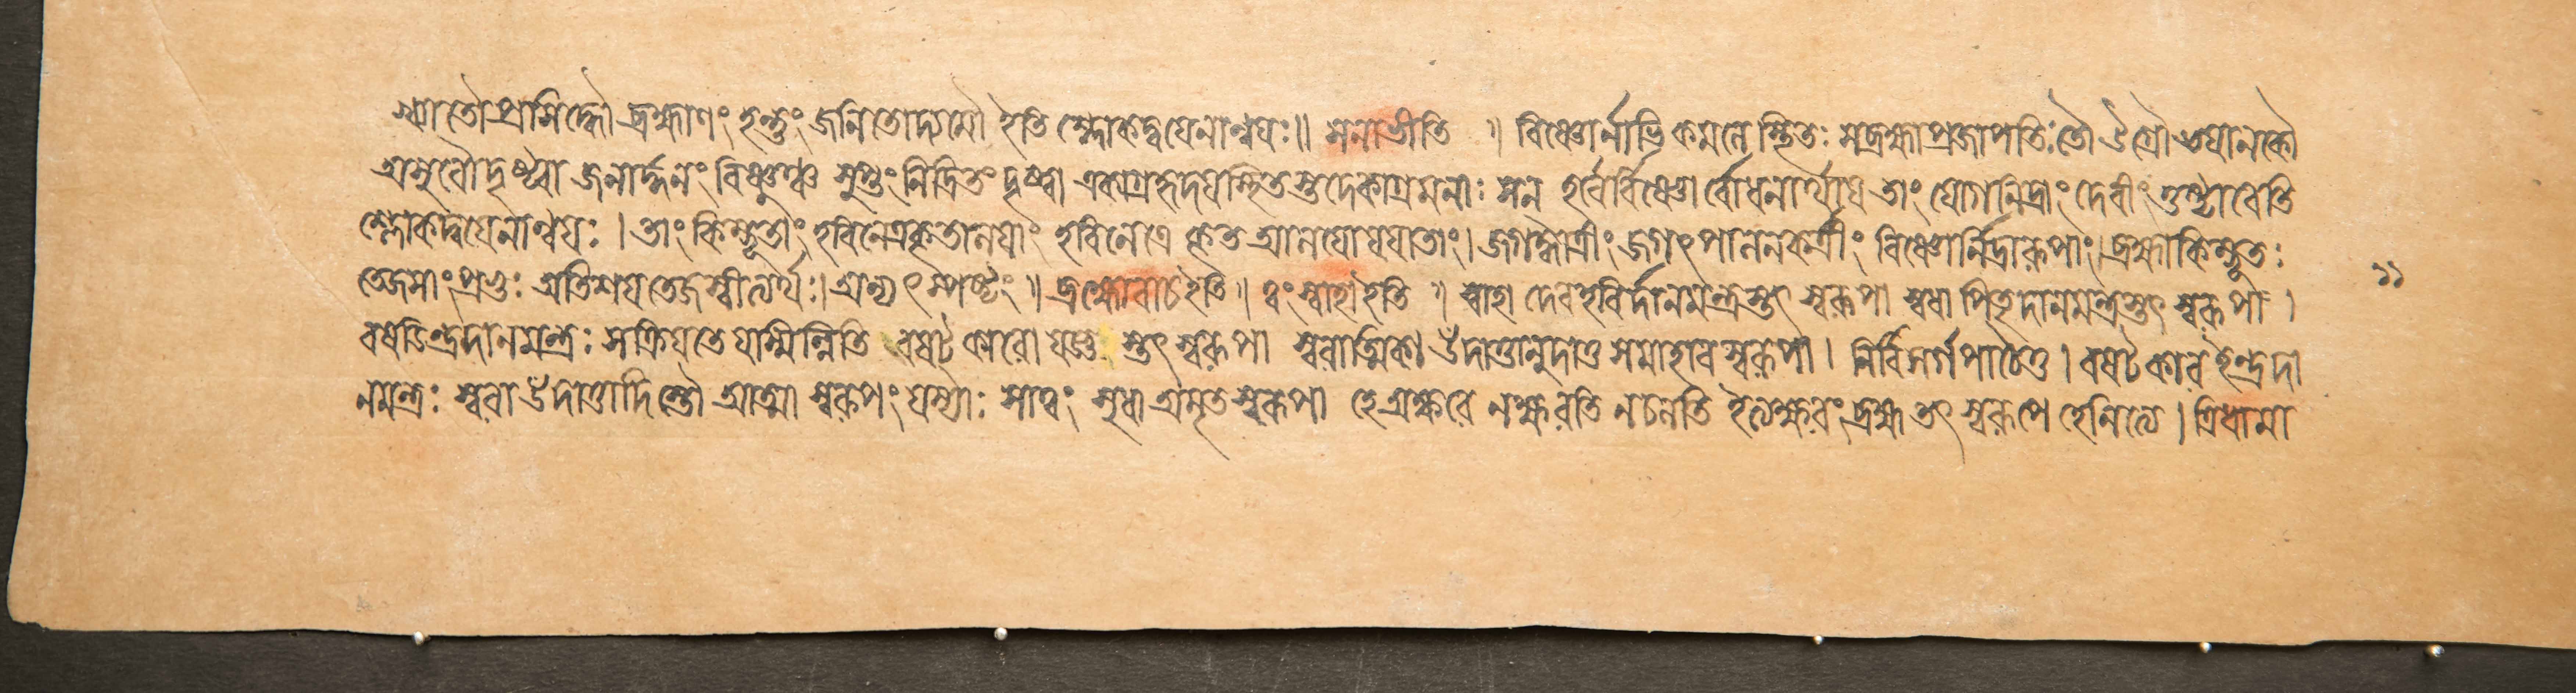 খ্যাতৌ প্রসিদ্ধৌ ব্রহ্মাণং হন্তুং জনিতোদ্যমৌ ইতি শ্লোকদ্বয়েনান্বয়ঃ॥ সনাভীতি ॥ বিষ্ণোর্নাভিকমলে স্থিতঃ সব্রহ্মা প্রজাপতিঃ তৌ উগ্রৌ ভয়ানকৌ
অসুরৌ দৃষ্ট্বা জনার্দ্দনং বিষ্ণুঞ্চ সুপ্তং নিদ্রিতং দৃষ্ট্বা একাগ্রহৃদয়স্থিতস্তদেকাগ্রমনাঃ সন হরের্বিষ্ণোর্বোধনার্থায় তাং যোগনিদ্রাং দেবীং তুষ্টাবেতি
শ্লোকদ্বয়েনান্বয়ঃ । তাং কিম্ভূতাং হরিনেত্রকৃতালয়াং হরিনেত্রে কৃত আলয়োযযাতাং। জগদ্ধাত্রীং জগৎপালনকর্ত্রীং বিষ্ণোর্নিদ্রারূপাং। ব্রহ্মা কিম্ভূতঃ
তেজসাং প্রভুঃ অতিশয়তেজস্বীত্যর্থঃ। অন্যৎস্পষ্টং ॥ ব্রহ্মোবাচ ইতি ॥ ত্বং স্বাহা ইতি ॥ স্বাহা দেবহবির্দানমন্ত্রস্তৎস্বরূপা স্বধা পিতৃদানমন্ত্রস্তৎস্বরূপা ।
বষডিন্দ্রদানমন্ত্রঃ সক্রিয়তে যাস্মিন্নিতি বষট্কারো যজ্ঞস্তৎস্বরূপা স্বরাত্মিকা উদাত্তানুদাত্তসমাহারস্বরূপা । নির্বিসর্গপাঠেতু । বষট্কার ইন্দ্রদা
নমন্ত্রঃ স্বরা উদাত্তাদিস্তৌ আত্মা স্বরূপং যস্যাঃ সাত্বং সুধা অমৃতস্বরূপা হে অক্ষরে নক্ষরতি নচলতি ইত্যক্ষরং ব্রহ্ম তৎস্বরূপে হেনিত্যে । ত্রিধামা
১১